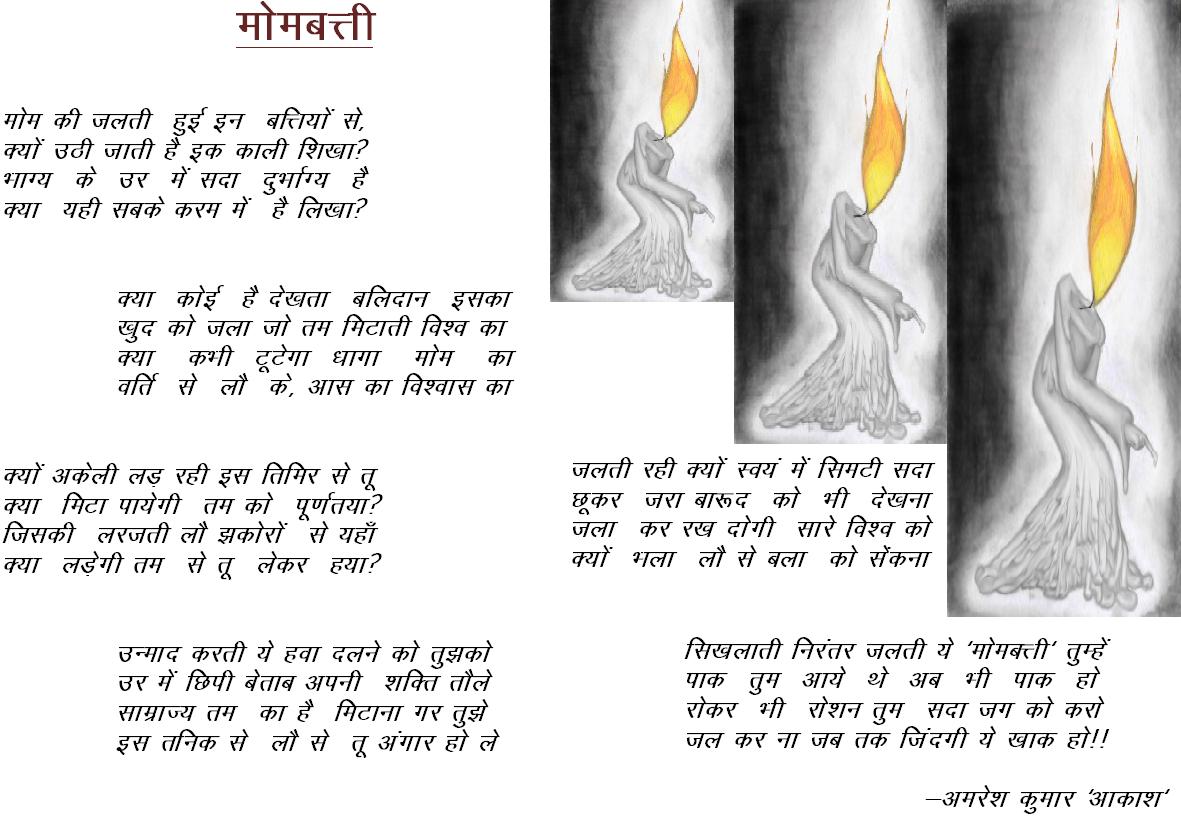 मोमबत्ती
मोम की जलती हुई इन बत्तियों से,
क्यों उठी जाती है इक काली शिखा?
भाग्य के उर में सदा दुर्भाग्य है
क्या यही सबके करम में है लिखा?
क्या कोई है देखता बलिदान इसका
खुद को जला जो तम मिटाती विश्व का
क्या कभी टूटेगा धागा मोम का
वर्ति से लौ के, आस का विश्वास का
क्यों अकेली लड़ रही इस तिमिर से तू
क्या मिटा पायेगी तम को पूर्णतया?
जिसकी लरजती लौ झकोरों से यहाँ
क्या लड़ेगी तम से तू लेकर हया?
उन्माद करती ये हवा दलने को तुझको
उर में छिपी बेताब अपनी शक्ति तौले
साम्राज्य तम का है मिटाना गर तुझे
इस तनिक से लौ से तू अंगार हो ले
जलती रही क्यों स्वयं में सिमटी सदा
छूकर जरा बारूद को भी देखना
जला कर रख दोगी सारे विश्व को
क्यों भला लौ से बला को सेंकना
सिखलाती निरंतर जलती ये 'मोमबत्ती' तुम्हें
पाक तुम आये थे अब भी पाक हो
रोकर भी रोशन तुम सदा जग को करो
जल कर ना जब तक जिंदगी ये खाक हो!!
–अमरेश कुमार 'आकाश'